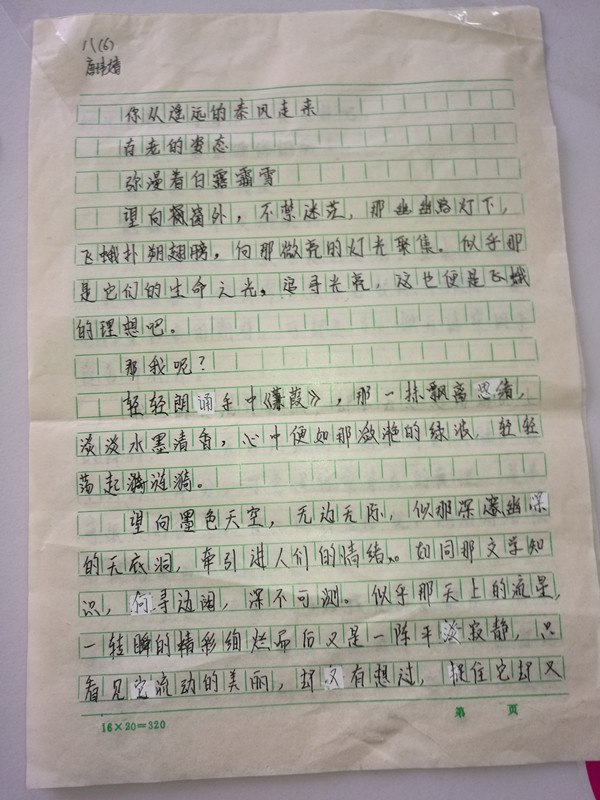 八(6)
你从遥远的秦风走来
古老的姿态
弥漫着白露霜雪
望向窗外，不禁迷茫，那幽幽路灯下，
飞蛾扑朔翅膀，向那微亮的灯光聚集。似乎那
是它们的生命之光。追寻光亮，这也便是飞蛾
的理想吧。
那我呢？
轻轻朗诵手中《蒹葭》，那一抹飘离思绪，
淡淡水墨清香，心中便如那潋滟的绿波，轻轻
荡起涟漪。
望向墨色天空，无边无际，似那深邃幽深
的天底洞，牵引进人们的情绪。如同那文学知
识，何寻边阔，深不可测。似乎那天上的流星，
一转瞬的精彩绚烂而后又是一阵平淡寂静，只
看见它流动的美丽，却又有想过，捉住它却又
16×20=320
第 页